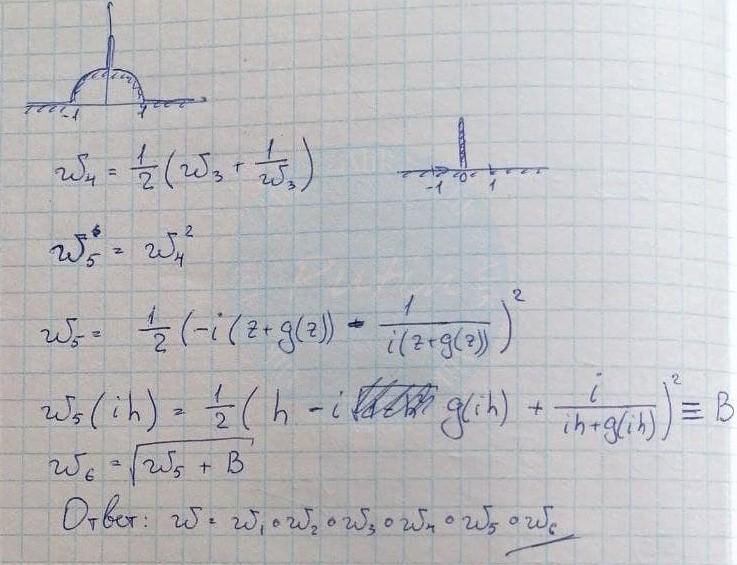 -1 1
w₄ = 1/2 (w₃ + 1/w₃)
-1 0 1
w₅ = w₄²
w₅ = 1/2 (-i(z+g(z)) - 1/(i(z+g(z))))²
w₅(ih) = 1/2 (h - i g(ih) + i/(ih+g(ih)))² ≡ B
w₆ = √(w₅ + B)
Ответ: w = w₁∘w₂∘w₃∘w₄∘w₅∘w₆